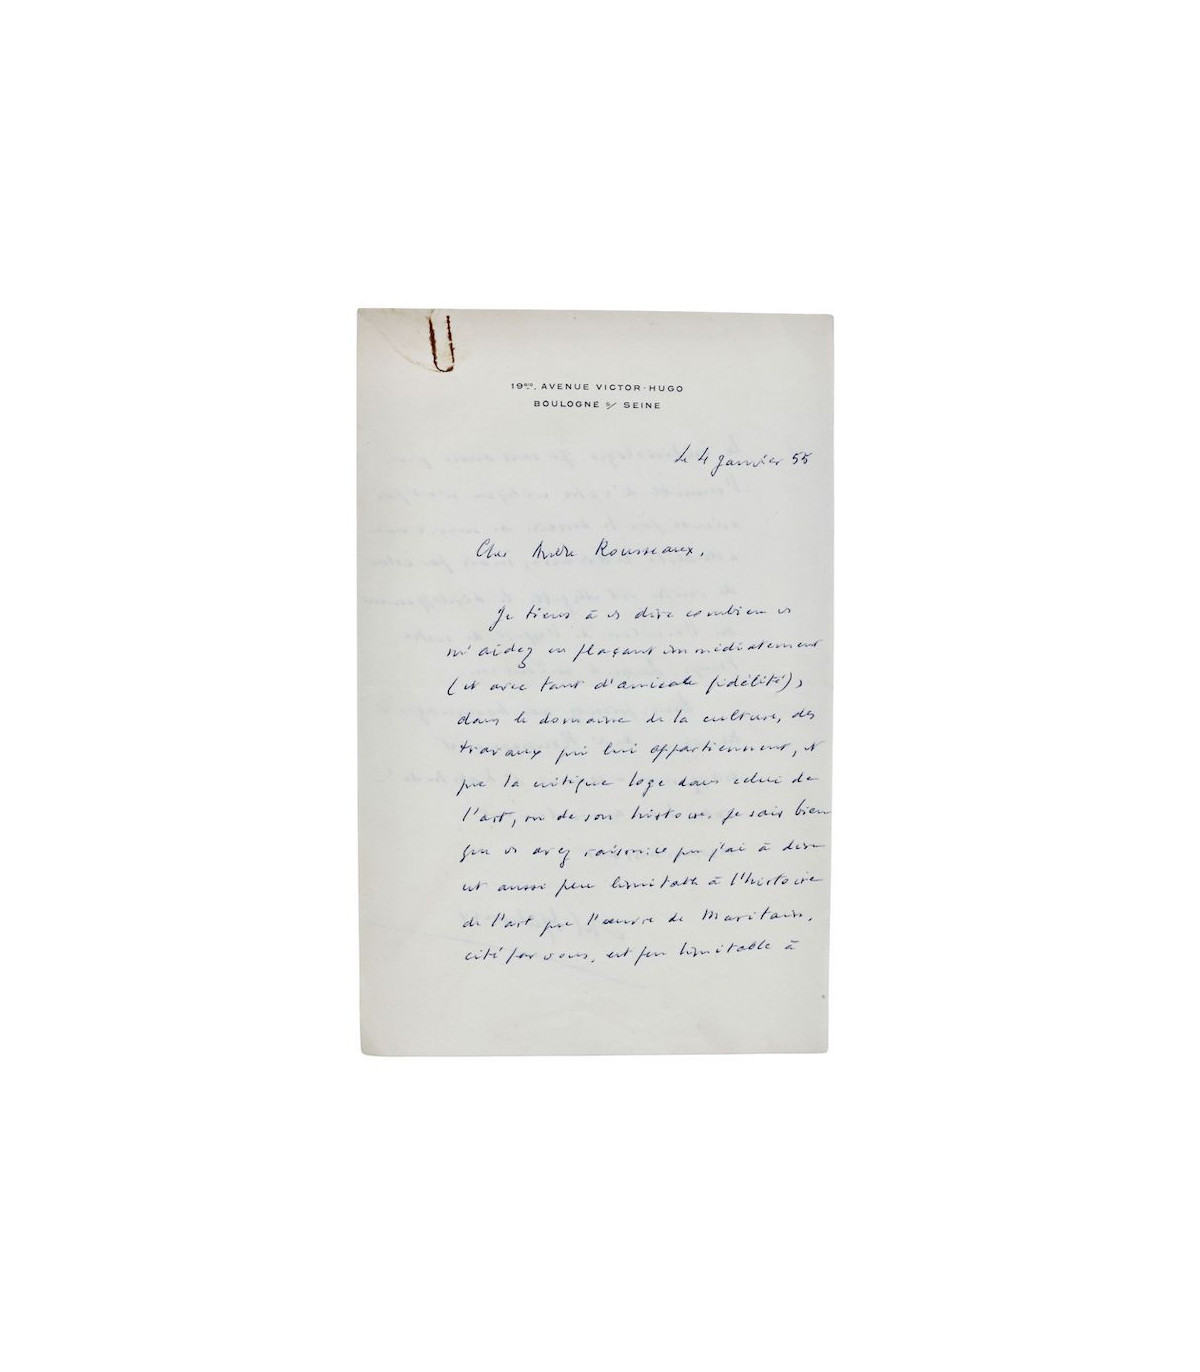 19BIS, AVENUE VICTOR-HUGO
BOULOGNE S/ SEINE
Le 4 janvier 55
Cher André Rousseaux,
Je tiens à vs dire combien vs
m'aidez en plaçant immédiatement
(et avec tant d'amicale fidélité),
dans le domaine de la culture, des
travaux qui lui appartiennent, et
que la critique loge dans celui de
l'art, ou de son histoire. Je sais bien
que vs avez raison : ce que j'ai à dire
est aussi peu limitable à l'histoire
de l'art que l'œuvre de Maritain,
cité par vous, est peu limitable à